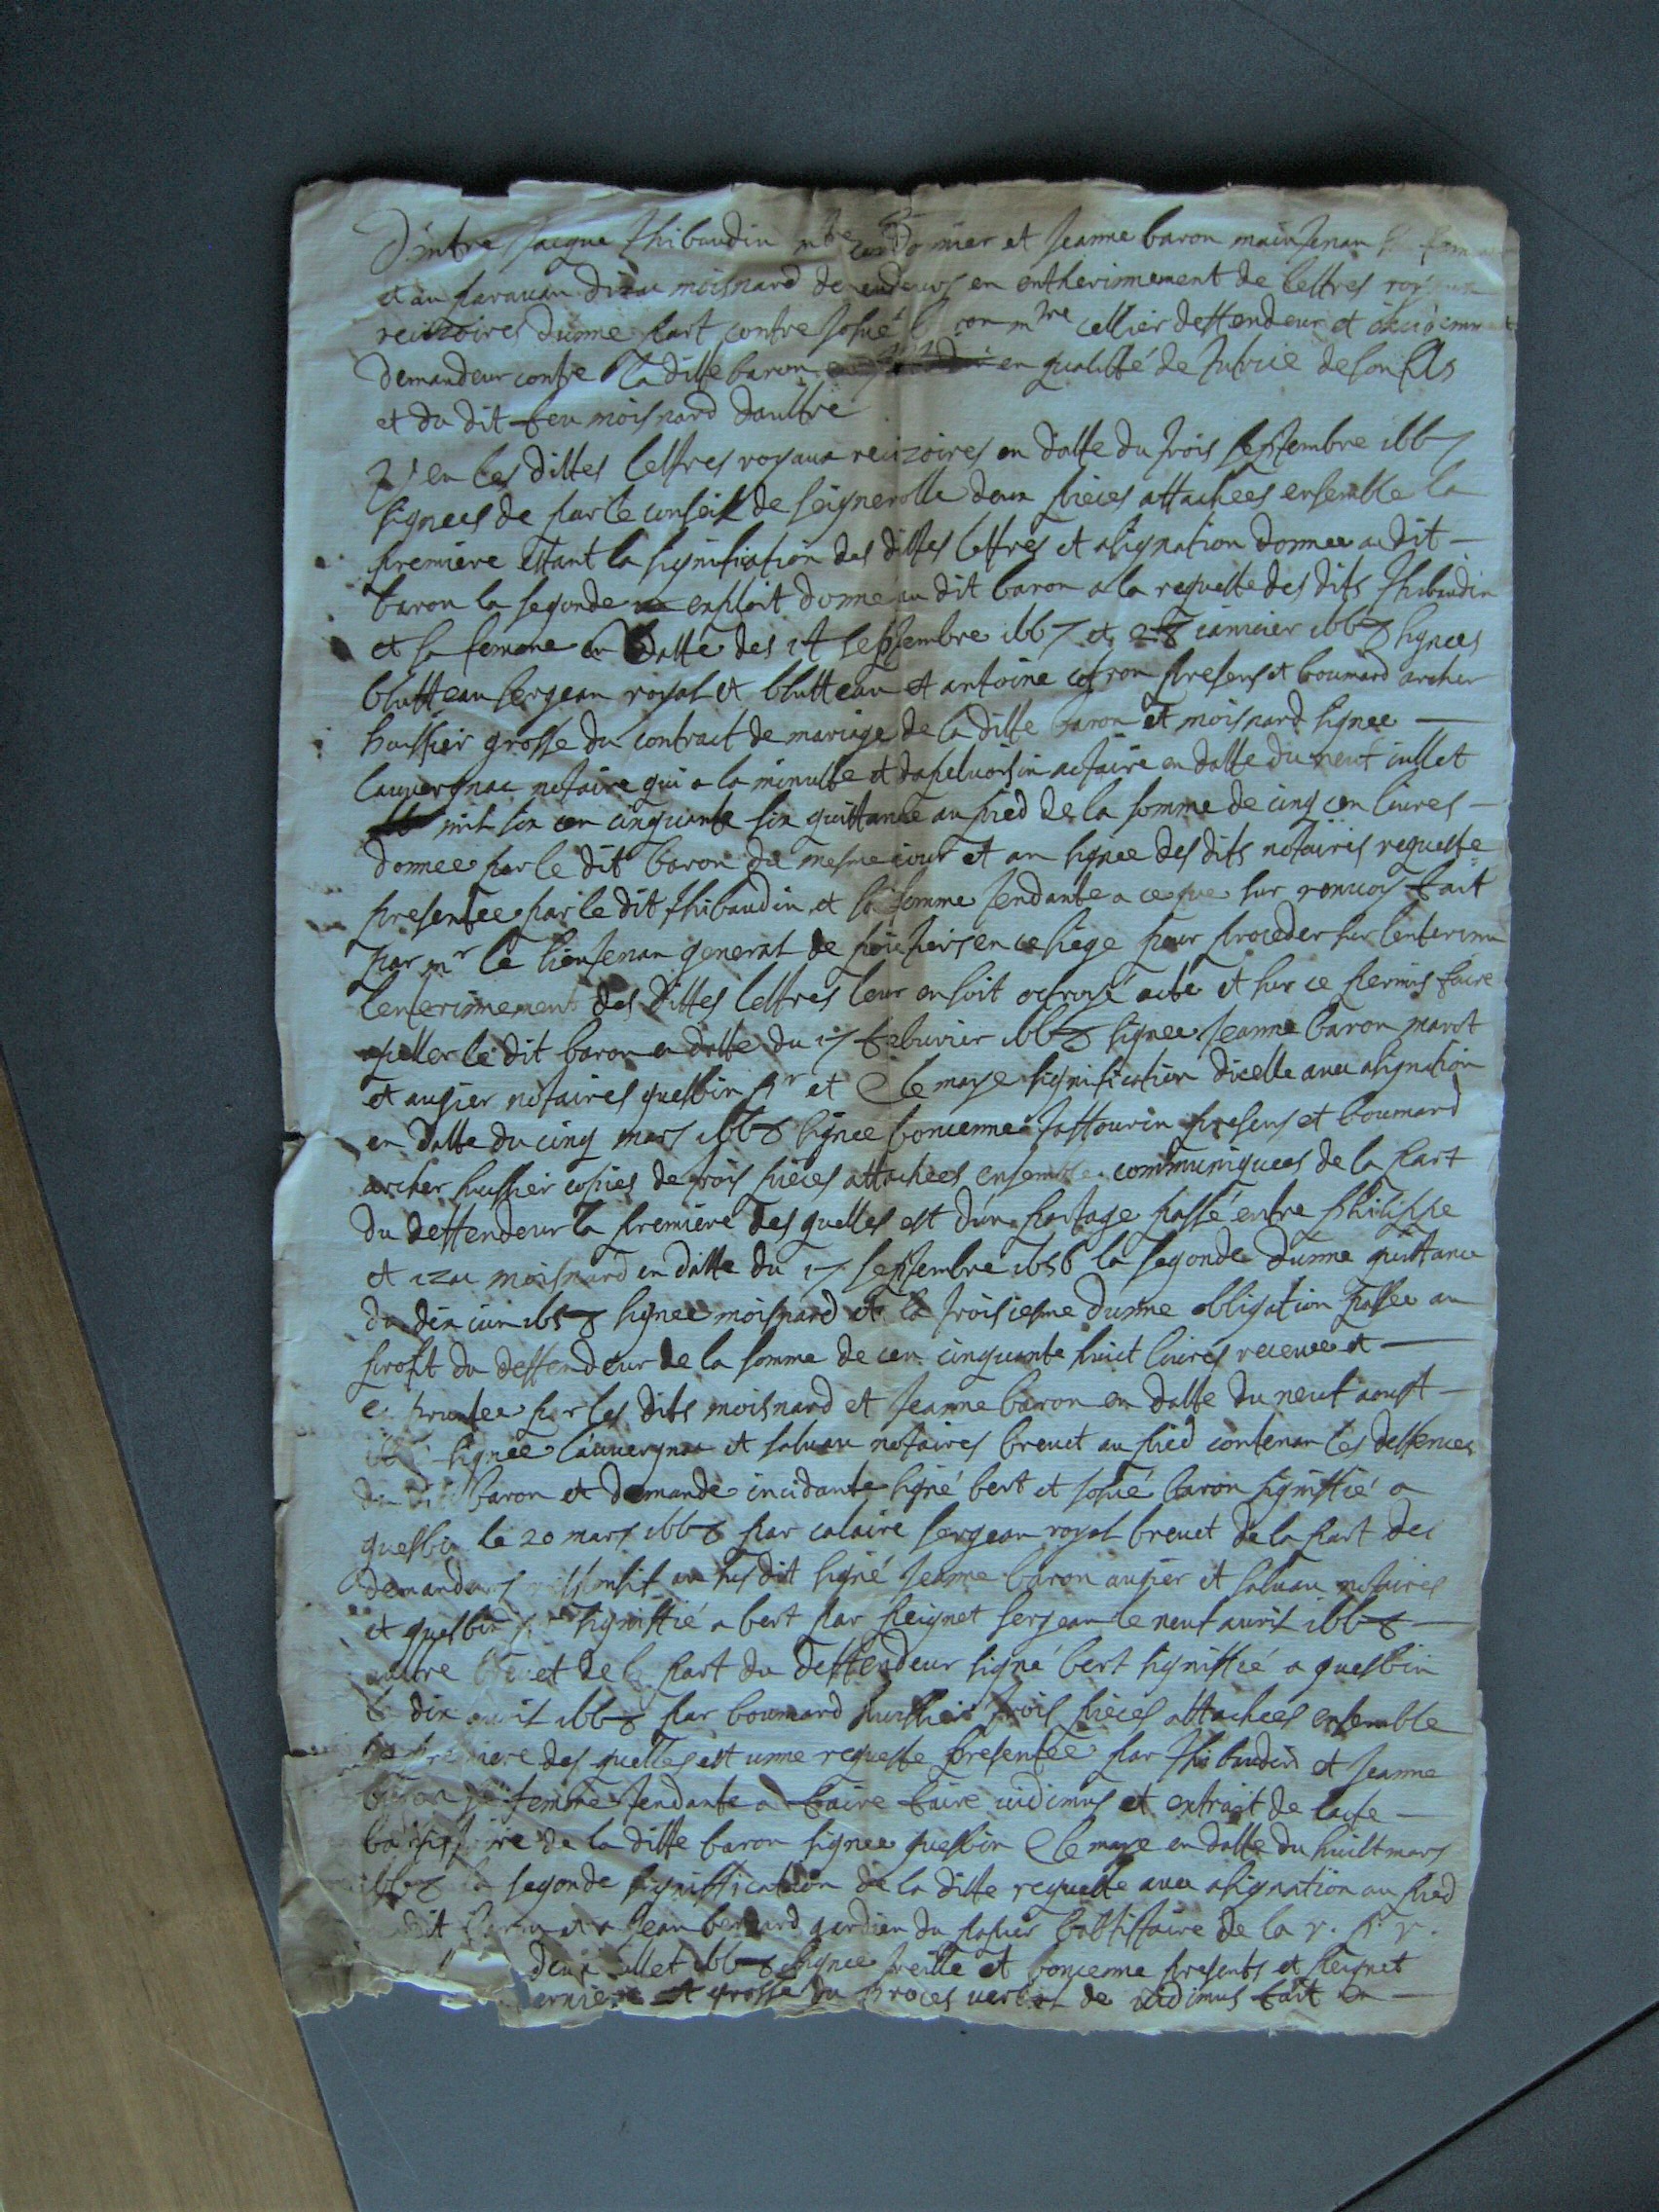 D'entre Jacque Thibaudin mtre cordonier et Jeanne baron maintenan sa femme
et au paravan d'izac moisnard demendeurs en entherinnement de lettres royaux
recizoires d'unne part contre Josué baron mtre cellier deffendeur et
demandeur contre la ditte baron en qualitté de tutrice de son fils
et du dit feu moisnard d'aultre
Veu les dittes lettres royaux recizoires en datte du trois septembre 1667
signees de par le conseil de seignerolle deux pieces attachees ensemble la
premiere estant la signification des dittes lettres et asignation donnee audit
baron la segonde exploit donné au dit baron a la requeste des dits Thibaudin
et sa femme en datte des 14 septembre 1667 et 28 ianvier 1668 signees
blutteau sergean royal et blutteau et antoine presens et boumard archer
huissier grosse du contract de mariage de la ditte baron et moisnard signee
lauvergnac notaire qui a la minutte et dapeluoisin notaire en datte du neuf iullet
mil six cen cinquante six quittance au pied de la somme de cinq cen livres
donnee par le dit baron du mesme iour et an signee des dits notaires requeste
presentee par le dit Thibaudin et sa femme tendante a ce que sur renvoy fait
par mr le lieutenan general de poictiers en ce siege pour proceder sur lenterinn
lenterinnement des dittes lettres leur en soit octroyé acte et sur ce permis faire
apeller le dit baron en datte du 17 febuvrier 1668 signee Jeanne baron marot
et augier notaires quesbin pr et Clemaye signification dicelle avec asignation
en datte du cinq mars 1668 signee boncenne Tastourin presens et boumard
archer huissier copies de trois pieces attachees ensemble communiquees de la part
du deffendeur la premiere des quelles est d'un partage passé entre philippe
et izac moisnard en datte du 17 septembre 1656 la segonde d'unne quittance
du dix iuin 1658 signee moisnard et la troisiesme d'unne obligation passee au
profit du deffendeur de la somme de cen cinquante huict livres receue et
enpruntee par les dits moisnard et Jeanne baron en datte du neuf aoust
signee lauvergnac et saluau notaires brevet au pied contenan les deffences
du dit baron et demande incidante signé bert et Josué baron signiffié a
quesbin le 20 mars 1668 par calaire sergean royal brevet de la part des
demandeurs responsif au susdit signé Jeanne baron augier et saluau notaires
et quesbin pr signiffié a bert par peignet sergean le neuf avril 1668
aultre brevet de la part du deffendeur signé bert signiffié a quesbin
le dix avril 1668 par boumard huissier trois pieces attachees ensemble
la premiere des quelles est unne requeste presentee par Thibaudin et Jeanne
baron sa femme tendante a faire faire vidimus et extrait de lacte
baptistaire de la ditte baron signee quesbin Clemaye en datte du huict mars
1668 la segonde signiffication de la ditte requeste avec asignation au pied
dit baron et a Jean bernard gardien du papier babtistaire de la r. p. r.
deux iullet 1668 signee preille et boncenne presents et peignet
derniere est grosse du proces verbal de vidimus fait